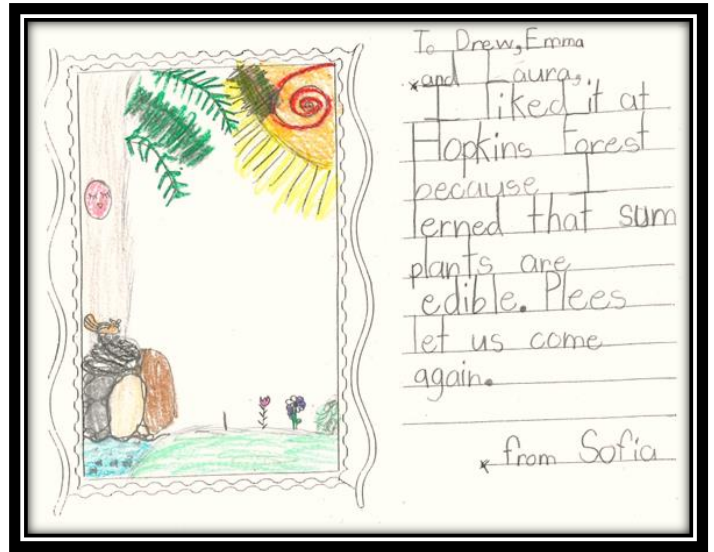 To Drew, Emma
*and Laura,
I liked it at
Hopkins Forest
because I
lerned that sum
plants are
edible. Plees
let us come
again.
*from Sofia